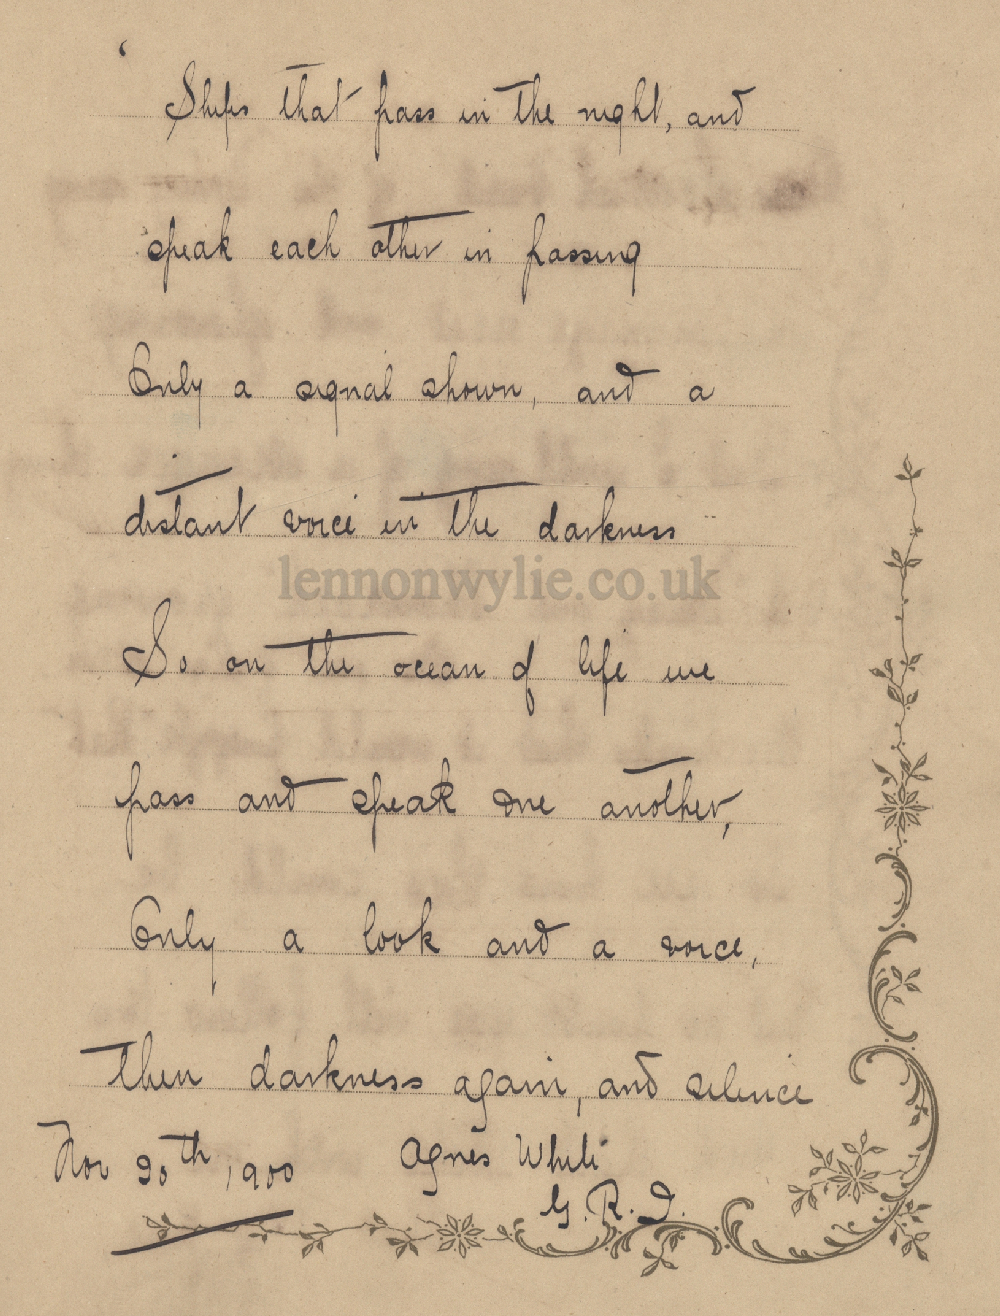 Ships that pass in the night, and
speak each other in passing
Only a signal shown, and a
distant voice in the darkness
lennonwylie.co.uk
So on the ocean of life we
pass and speak one another,
Only a look and a voice,
then darkness again, and silence
Nov 30th, 1900 Agnes White
G. R. I.